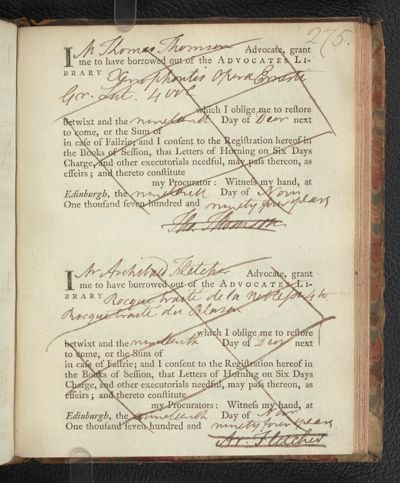 275.
I Mr Thomas Thomson Advocate, grant
me to have borrowed out of the ADVOCATES LI-
BRARY Xenophontis Opera Ernesti
Gr. Lat. 4 vols
which I oblige me to reſtore
betwixt and the nineteenth Day of Decr next
to come, or the Sum of
in caſe of Failzie; and I conſent to the Regiſtration hereof in
the Books of Seſſion, that Letters of Horning on Six Days
Charge, and other executorials needful, may paſs thereon, as
effeirs; and thereto conſtitute
my Procurator: Witneſs my hand, at
Edinburgh, the nineteenth Day of Novr
One thouſand ſeven hundred and ninety four years
Tho. Thomson
I Mr Archibald Fletcher Advocate, grant
me to have borrowed out of the ADVOCATES LI-
BRARY Rocque traité de la Noblesse 4to
Rocque traité du Blason
which I oblige me to reſtore
betwixt and the nineteenth Day of Decr next
to come, or the Sum of
in caſe of Failzie; and I conſent to the Regiſtration hereof in
the Books of Seſſion, that Letters of Horning on Six Days
Charge, and other executorials needful, may paſs thereon, as
effeirs; and thereto conſtitute
my Procurators: Witneſs my hand, at
Edinburgh, the nineteenth Day of Novr
One thouſand ſeven hundred and ninety four years
Ar. Fletcher